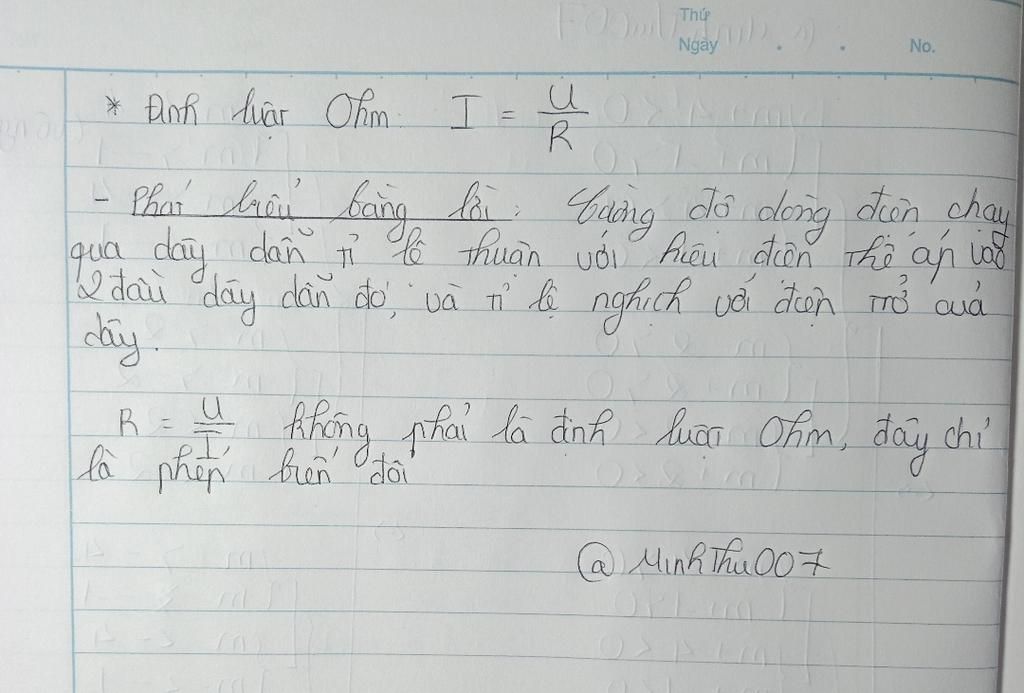 Thứ
Ngày . . No.
* Định luật Ohm: I = U/R
- Phát biểu bằng lời: Cường độ dòng điện chạy
qua dây dẫn tỉ lệ thuận với hiệu điện thế áp vào
2 đầu dây dẫn đó, và tỉ lệ nghịch với điện trở của
dây.
R = U/I không phải là định luật Ohm, đây chỉ
là phép biến đổi
@MinhThu007